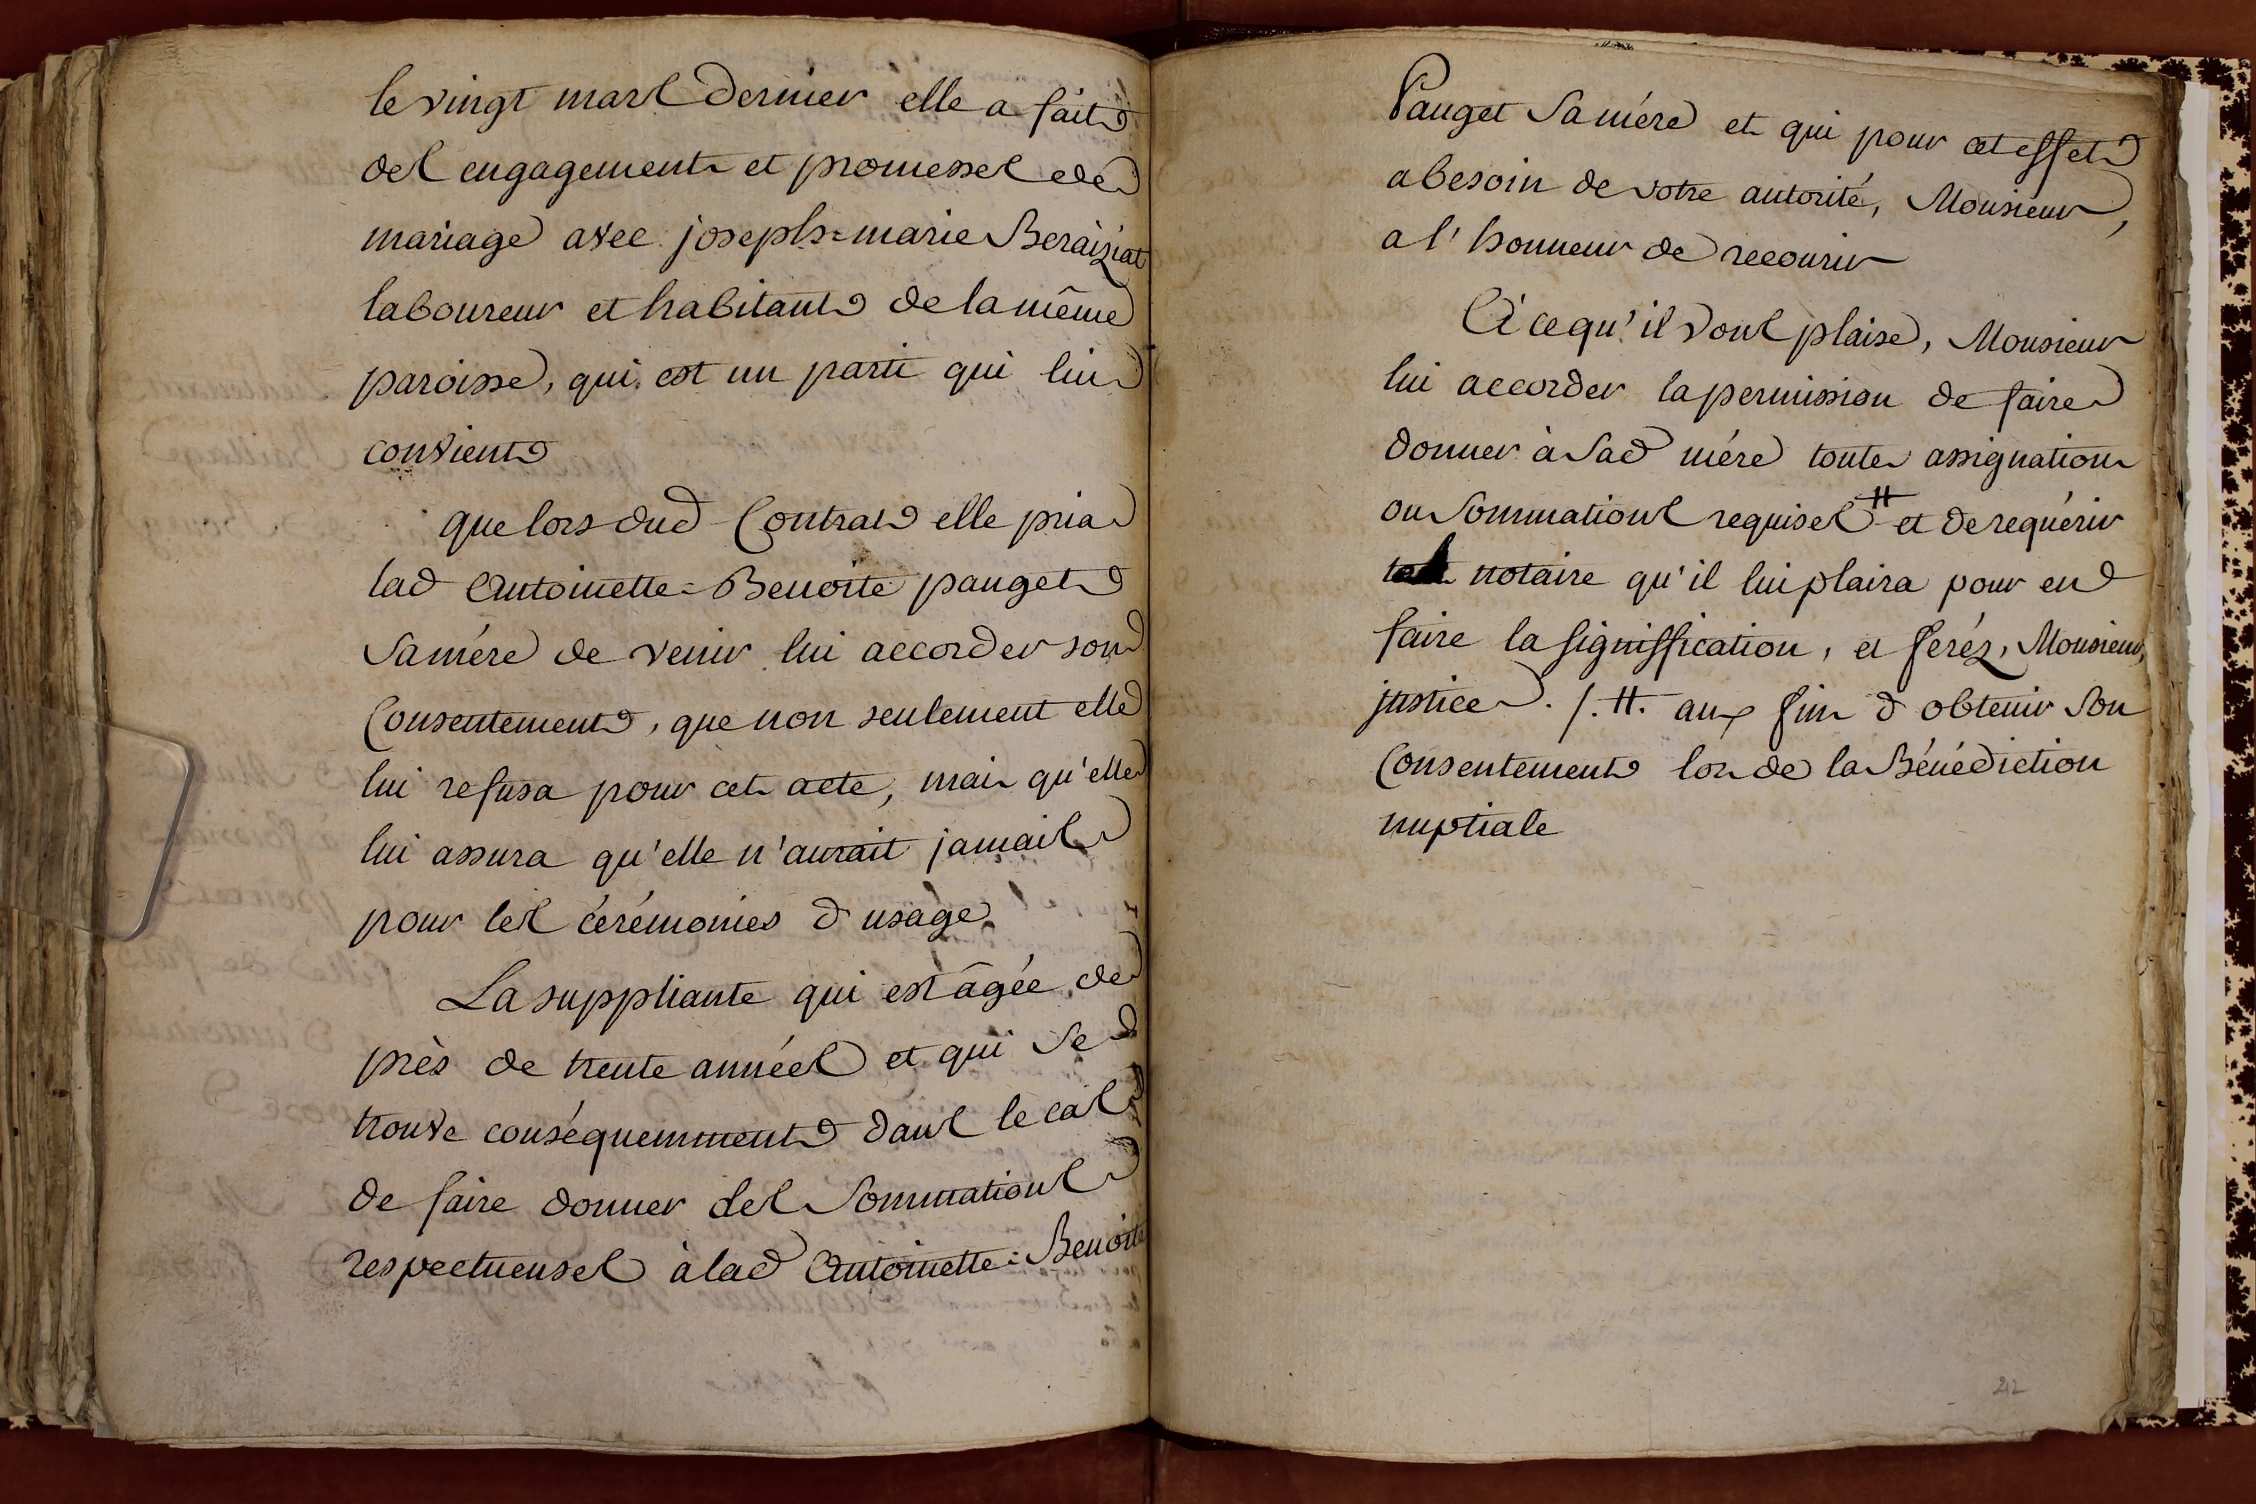 le vingt mars dernier elle a fait
des engagements et promesses de
mariage avec joseph=marie Beraiziat
laboureur et habitant de la même
paroisse, qui est un parti qui lui
convient
que lors dud Contrat elle pria
lad Antoinette=Benoite pauget
Sa mére de venir lui accorder son
Consentement, que non seulement elle
lui refusa pour cet acte, mais qu'elle
lui assura qu'elle n'aurait jamais
pour les cérémonies d'usage.
La suppliante qui est âgée de
près de trente années et qui se
trouve conséquemment dans le cas
de faire donner des Sommations
respectueuses à lad Antoinette=Benoite
Pauget Sa mére et qui pour cet effet
a besoin de votre autorité, Monsieur,
a l'honneur de recourir
A ce qu'il vous plaise, Monsieur
lui accorder la permission de faire
donner à Sad mére toutes assignations
ou Sommations requises # et de requérir
notaire qu'il lui plaira pour en
faire la signiffication, et ferés, Monsieur,
justice. /.#. aux fins d'obtenir Son
Consentement lors de la Bénédiction
nuptiale
212